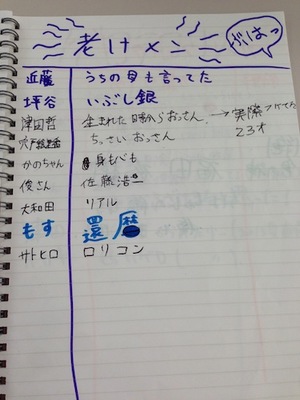 老けメン
ぶはっ
近藤 うちの母も言ってた
坪谷 いぶし銀
津田哲 生まれた時からおっさん → 実際
23才
ちっさいおっさん
かのちゃん 身も心も
俊さん 佐藤浩一
大和田 リアル
もす 還暦
サトヒロ ロリコン